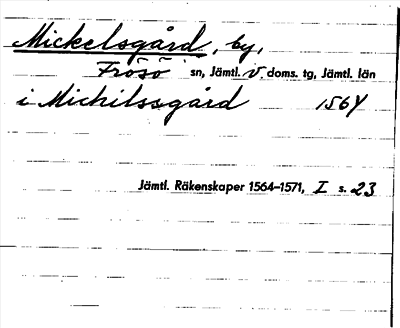 Mickelsgård, by,
Frösö sn, Jämtl. v. doms. tg, Jämtl. län
i Michilssgård 1564
Jämtl. Räkenskaper 1564–1571, I s. 23